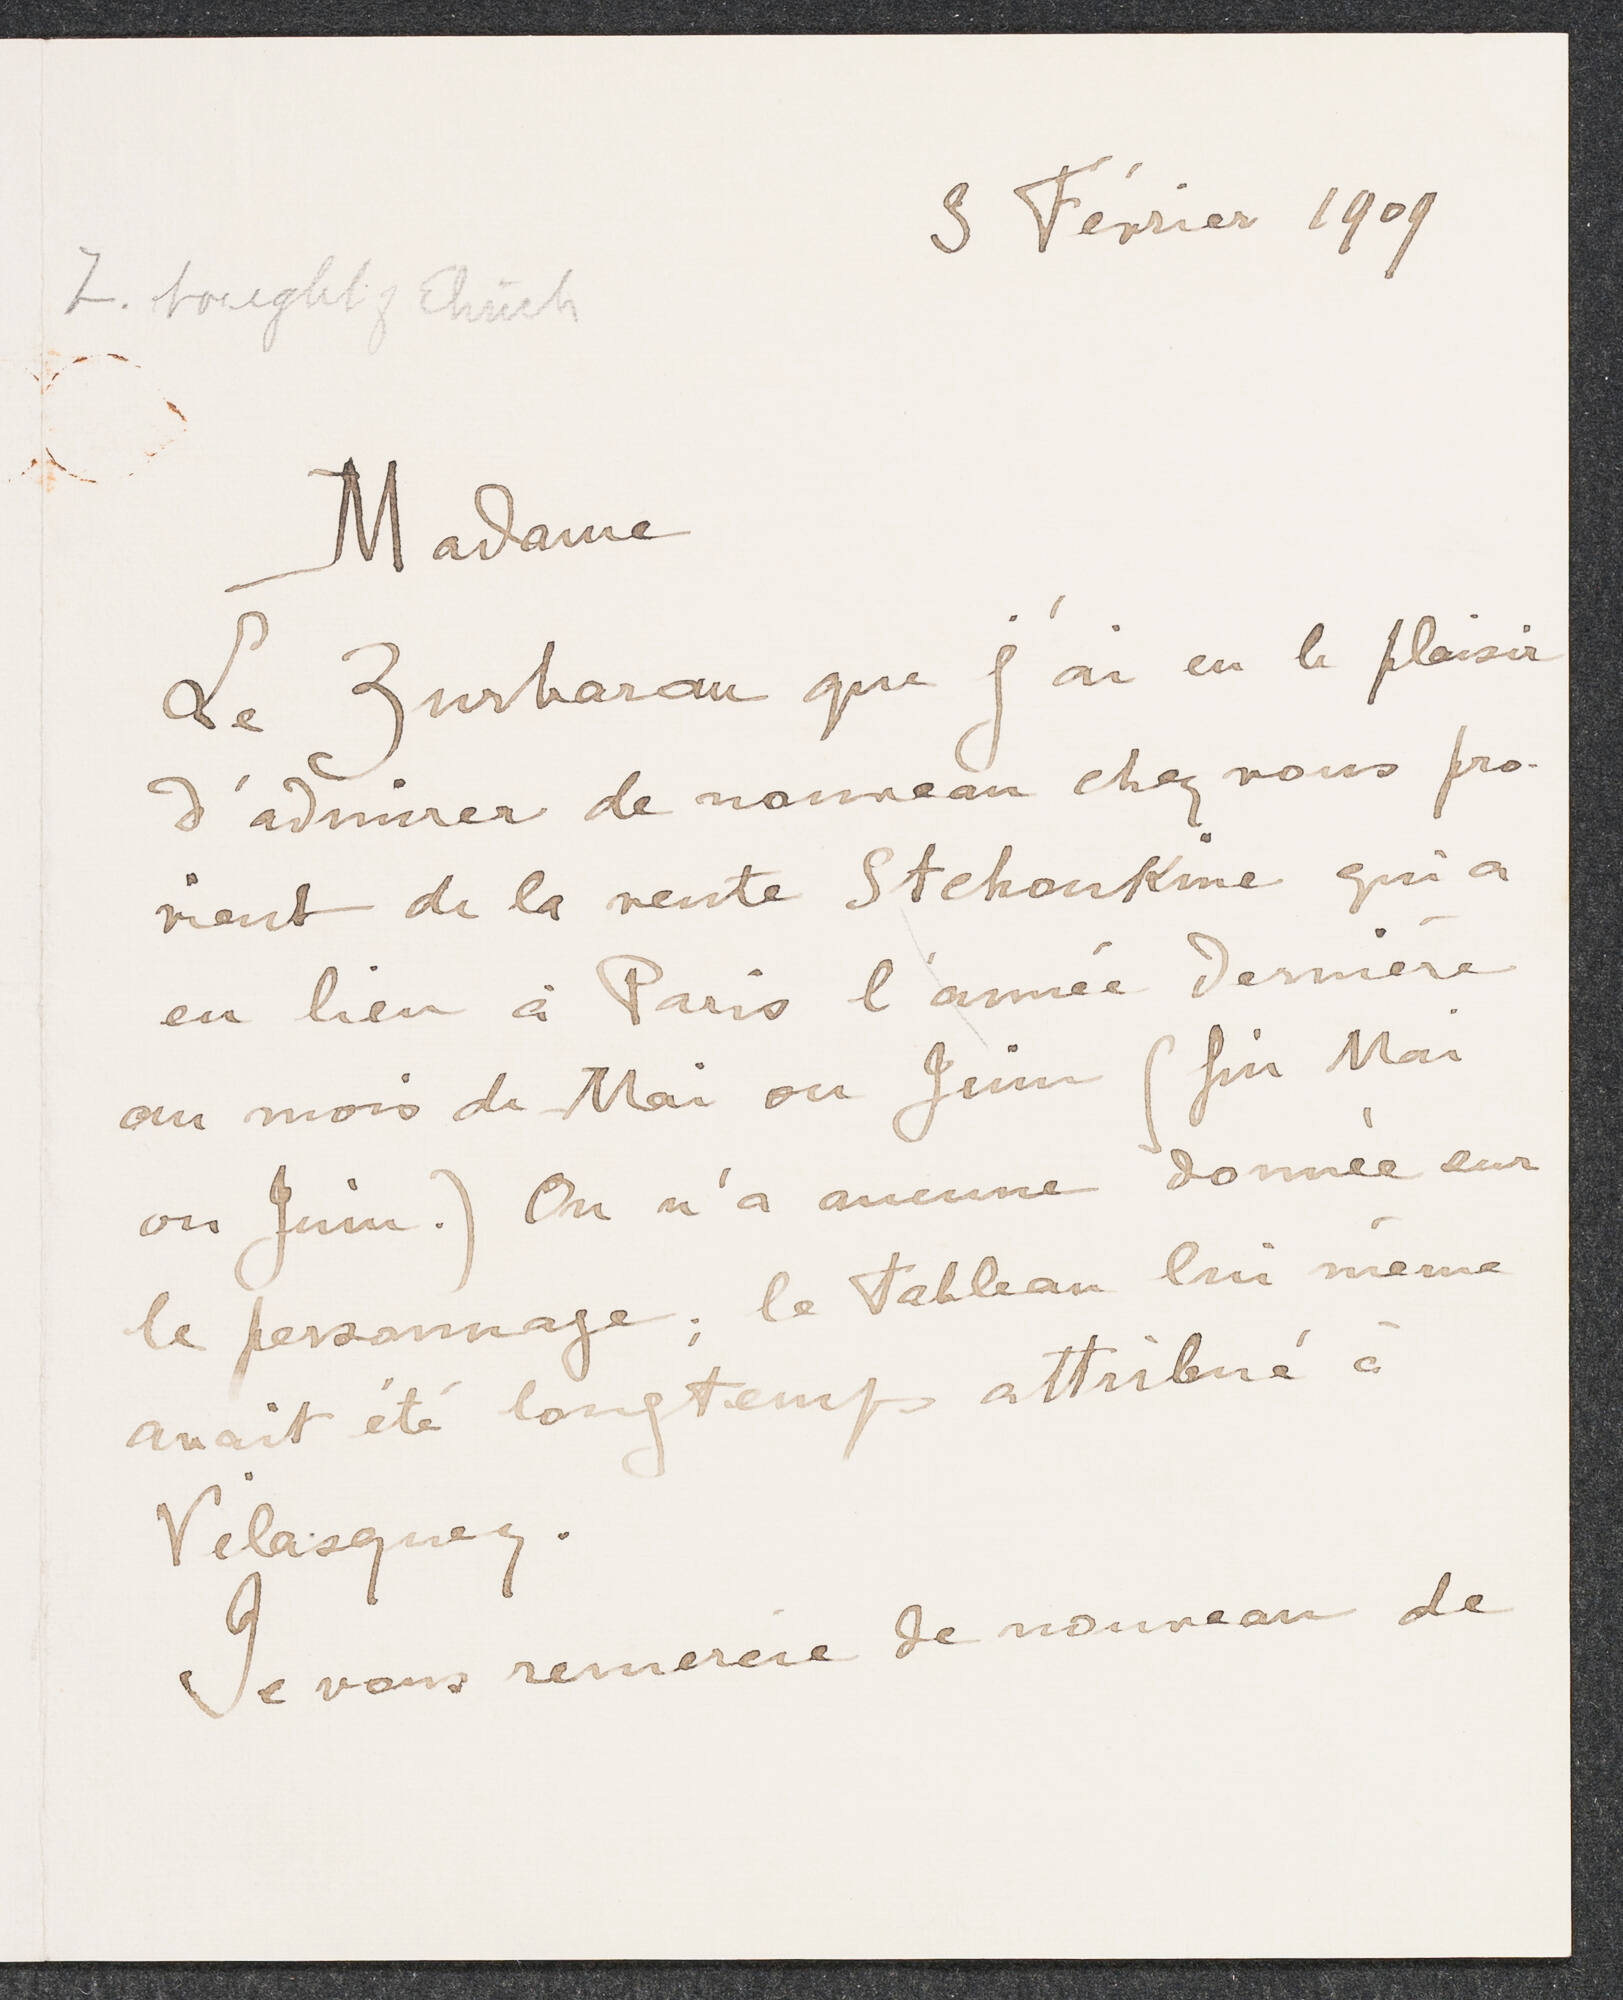 3 Février 1909
Z. bought of Ehrich
Madame
Le Zurbaran que j'ai eu le plaisir
d'admirer de nouveau chez vous pro-
vient de la vente Stchoukine qui a
eu lieu à Paris l'année dernière
au mois de Mai ou Juin (fin Mai
ou Juin.) On n'a aucune donnée sur
le personnage; le tableau lui même
avait été longtemps attribué à
Vélasquez.
Je vous remercie de nouveau de